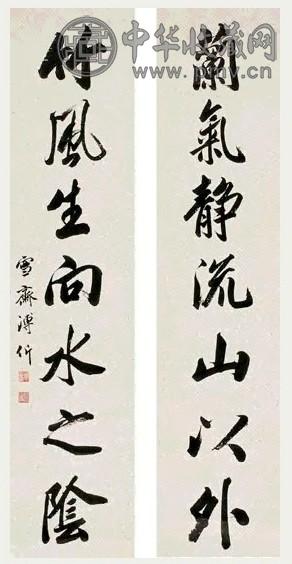 中华收藏网
www.pmv.cn
蘭氣静流山以外
竹風生向水之陰
雪齋溥伒